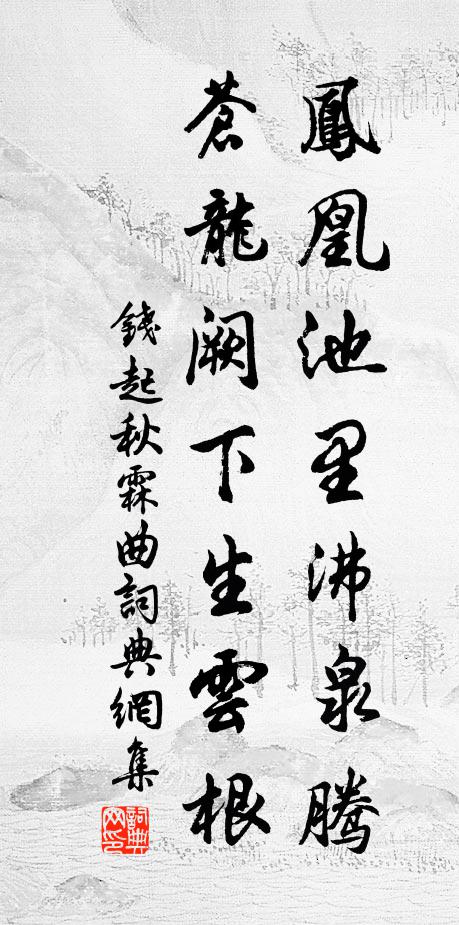 鳳凰池里沸泉騰
蒼龍闕下生雲根
錢起秋霖曲詞典網集
詞典網印